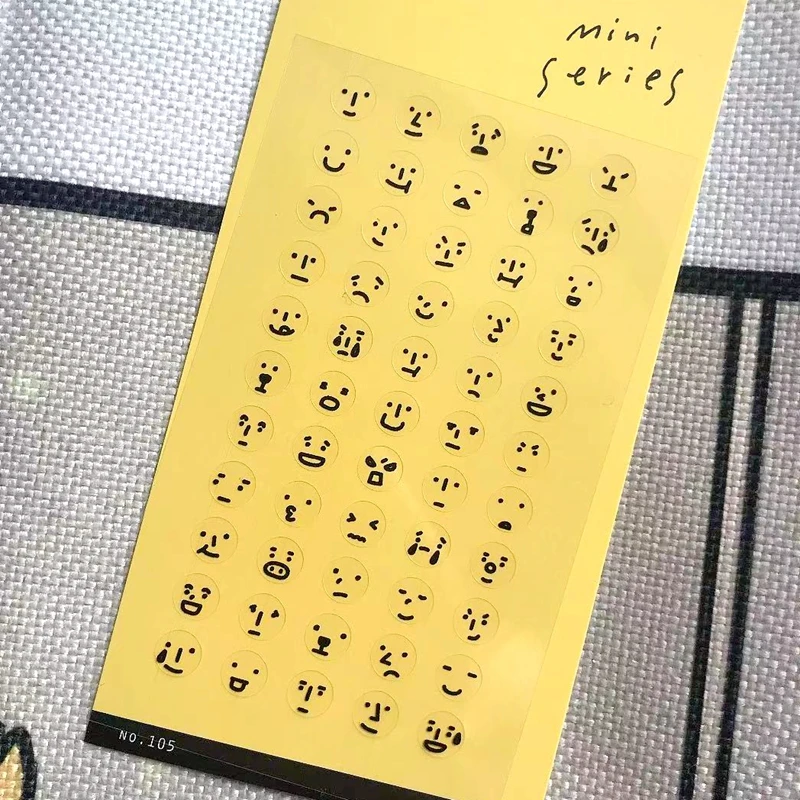 mini
series
No.105